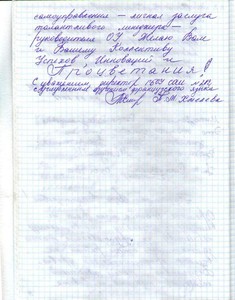 самоуправления – личная заслуга
талантливого менеджера –
руководителя ОУ. Желаю Вам
и Вашему Коллективу
Успехов, Инноваций и
Процветания!
С уважением, директор
с углубленным изучением французского языка